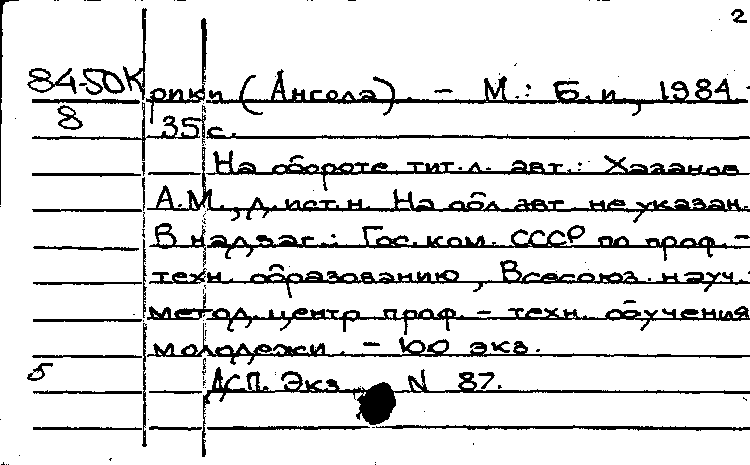 2
84-50К рпки (Ангола). - М.: Б.и, 1984.-
8 35с.
На обороте тит.л. авт.: Хазанов
А.М., д.ист.н. На обл авт не указан.
В надзаг.: Гос.ком. СССР по проф.-
техн. образованию, Всесоюз. науч.-
метод. центр проф.- техн. обучения
молодежи. - 100 экз.
5 ДСП. Экз. N 87.